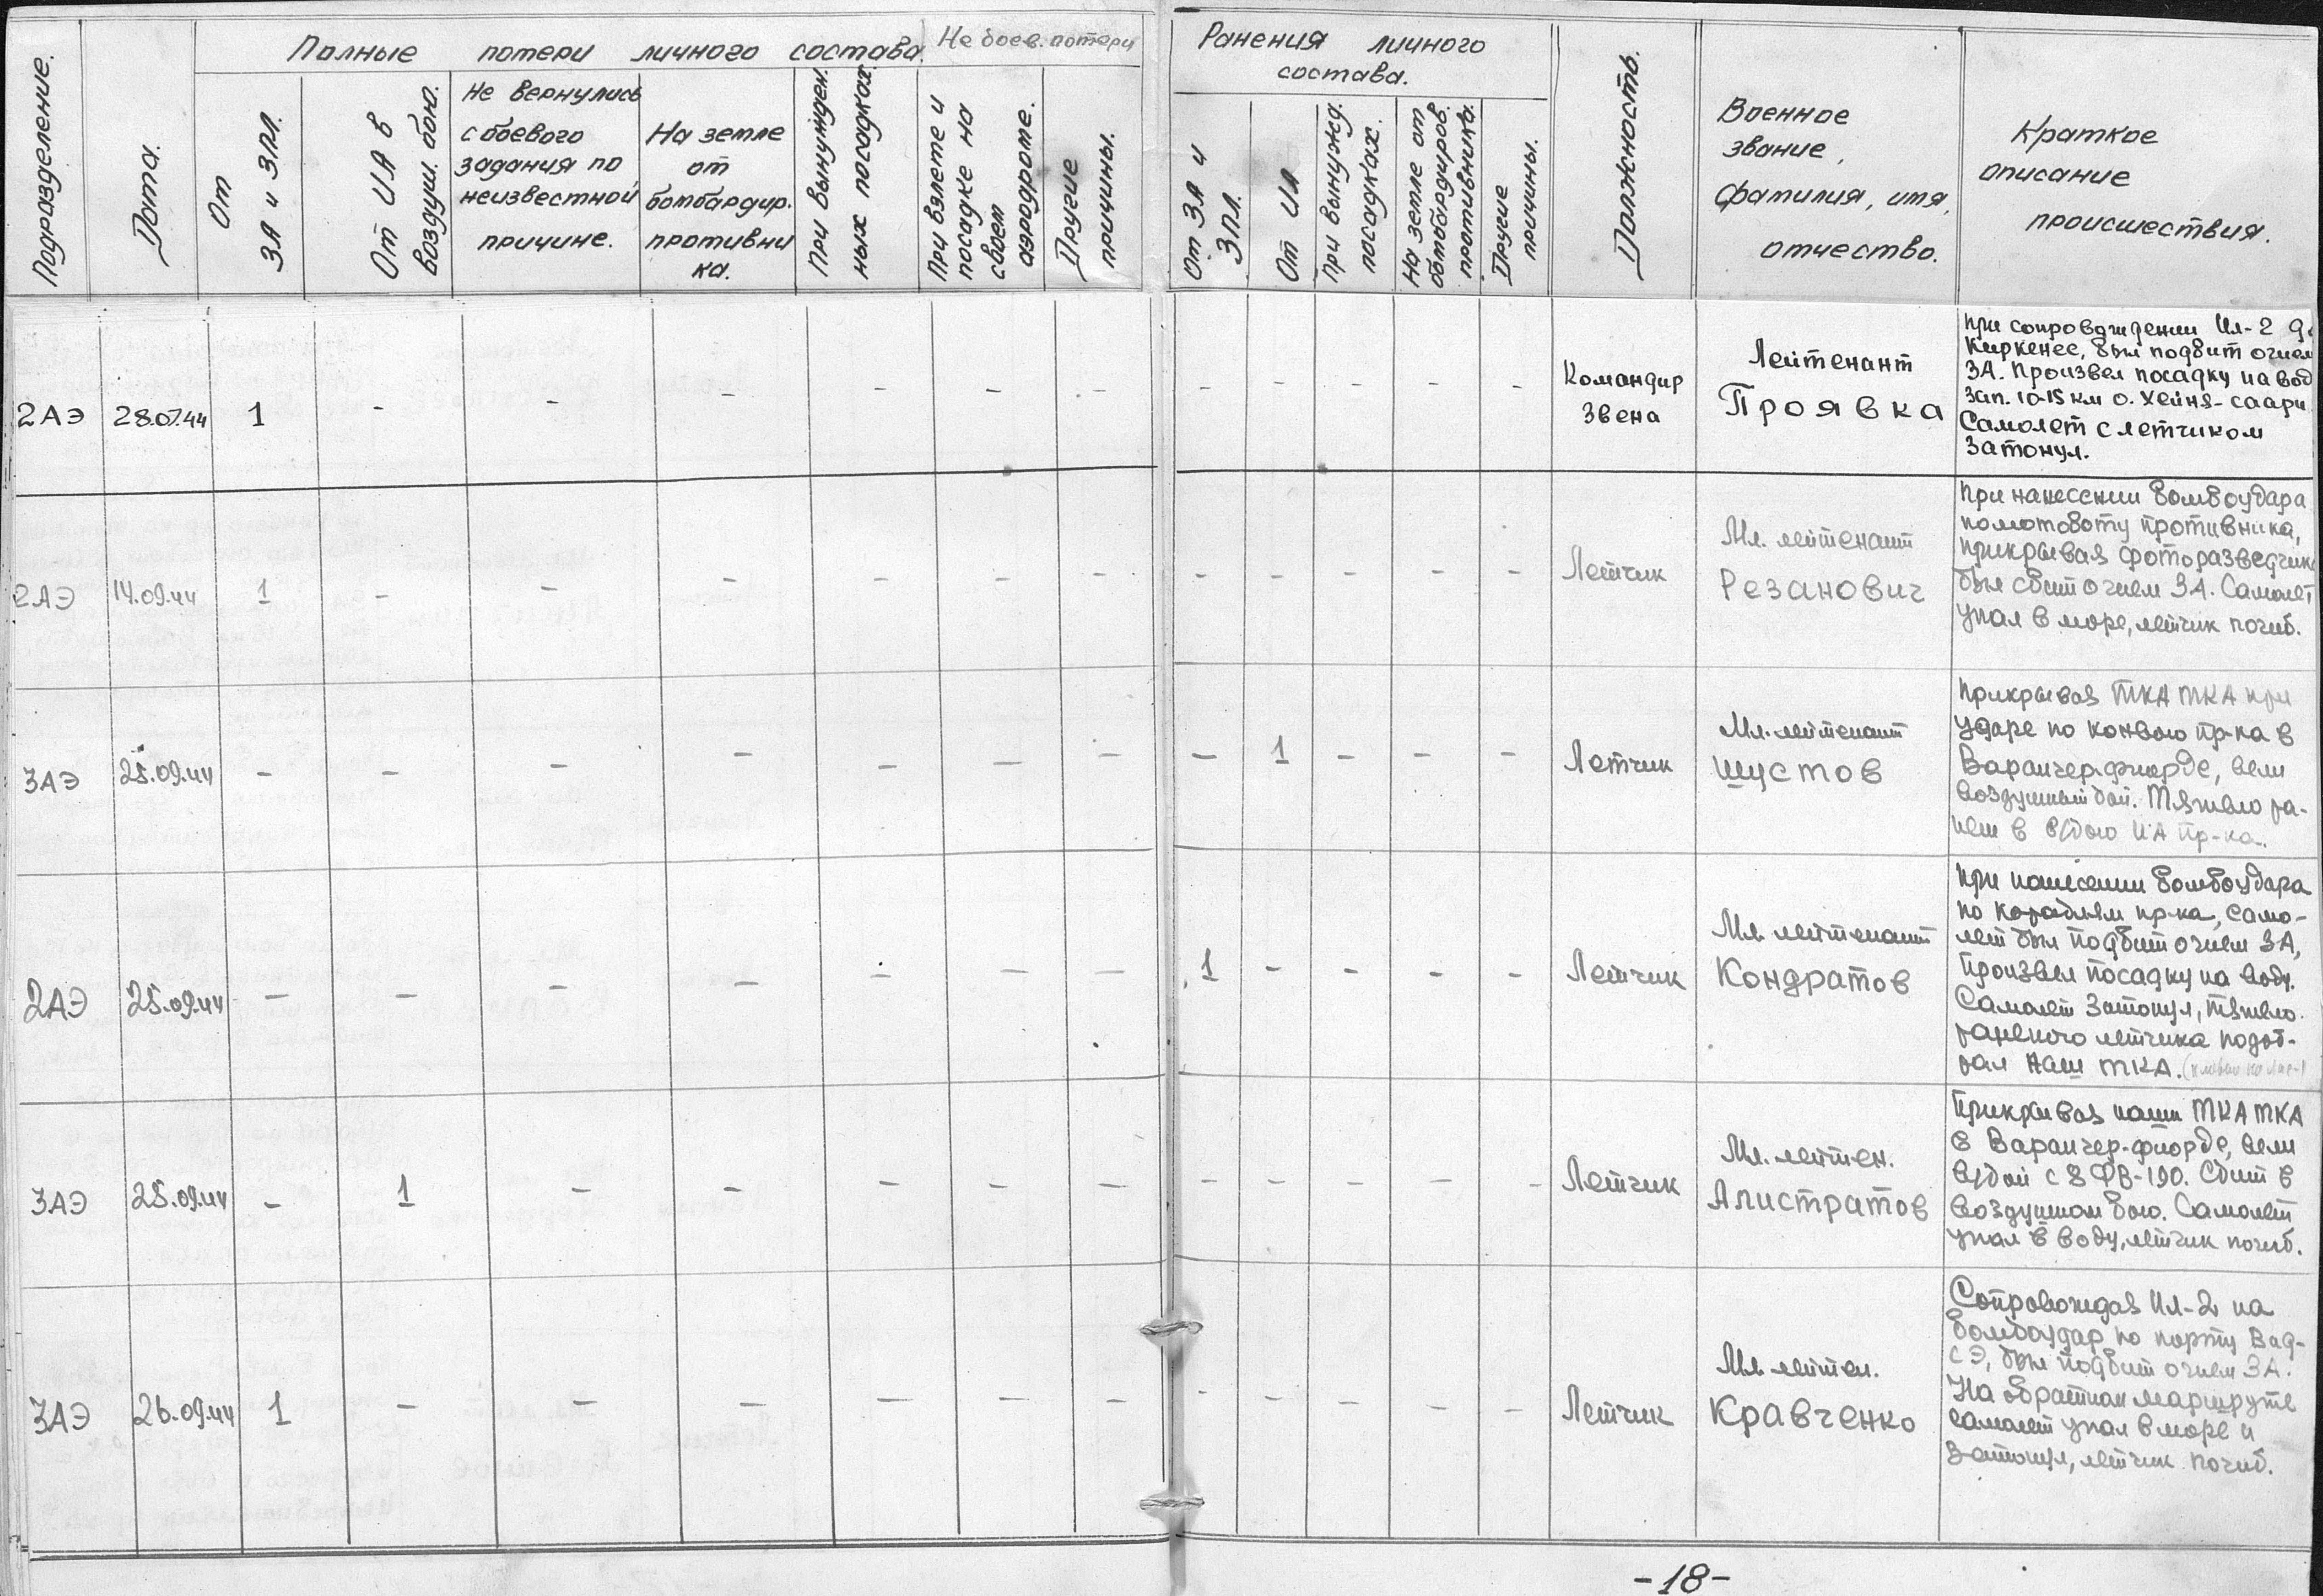 Подразделение.
Дата.
Полные потери личного состава.
Не боев. потери
От
ЗА и ЗПЛ.
От ИА в
воздуш. бою.
Не вернулись
с боевого
задания по
неизвестной
причине.
На земле
от
бомбардир.
противни
ка.
При вынужден.
ных посадках.
При взлете и
посадке на
своем
аэродроме.
Другие
причины.
Ранения личного
состава.
От ЗА и
ЗПЛ.
От ИА
При вынужд.
посадках.
На земле от
бомбардиров.
противника.
Другие
причины.
Должность.
Военное
звание,
фамилия, имя,
отчество.
Краткое
описание
происшествия.
2АЭ 28.07.44 1 - - - - - - - - - - -
Командир
Звена
Лейтенант
Проявка
При сопровождении Ил-2 д.
Киркенес, был подбит огнем
ЗА. Произвел посадку на вод
Зап. 10-15 км о. Хейня-саари
Самолет с летчиком
Затонул.
2АЭ 14.09.44 1 - - - - - - - - - - -
Летчик
Мл. лейтенант
Резанович
При нанесении бомбоудара
по мотоботу противника,
прикрывая фоторазведчик
был сбит огнем ЗА. Самолет
упал в море, летчик погиб.
3АЭ 25.09.44 - - - - - - - - 1 - - -
Летчик
Мл. лейтенант
Шустов
Прикрывая ТКА ТКА при
ударе по конвою пр-ка в
Варангер-фиорде, вели
воздушный бой. Тяжело ра-
нен в в/бою ИА пр-ка.
2АЭ 25.09.44 - - - - - - - 1 - - - -
Летчик
Мл. лейтенант
Кондратов
При нанесении бомбоудара
по кораблям пр-ка, само-
лет был подбит огнем ЗА,
Произвел посадку на воду.
Самолет Затонул, тяжело
раненого летчика подоб-
рал наш ТКА.
3АЭ 25.09.44 - 1 - - - - - - - - - -
Летчик
Мл. лейтен.
Апистратов
Прикрывая наши ТКА ТКА
в Варангер-фиорде, вели
в/бой с 8 ФВ-190. Сбит в
воздушном бою. Самолет
упал в воду, летчик погиб.
3АЭ 26.09.44 1 - - - - - - - - - - -
Летчик
Мл. лейтен.
Кравченко
Сопровождая Ил-2 на
бомбоудар по порту Вад-
сэ, был подбит огнем ЗА.
На обратном маршруте
самолет упал в море и
затонул, летчик погиб.
-18-